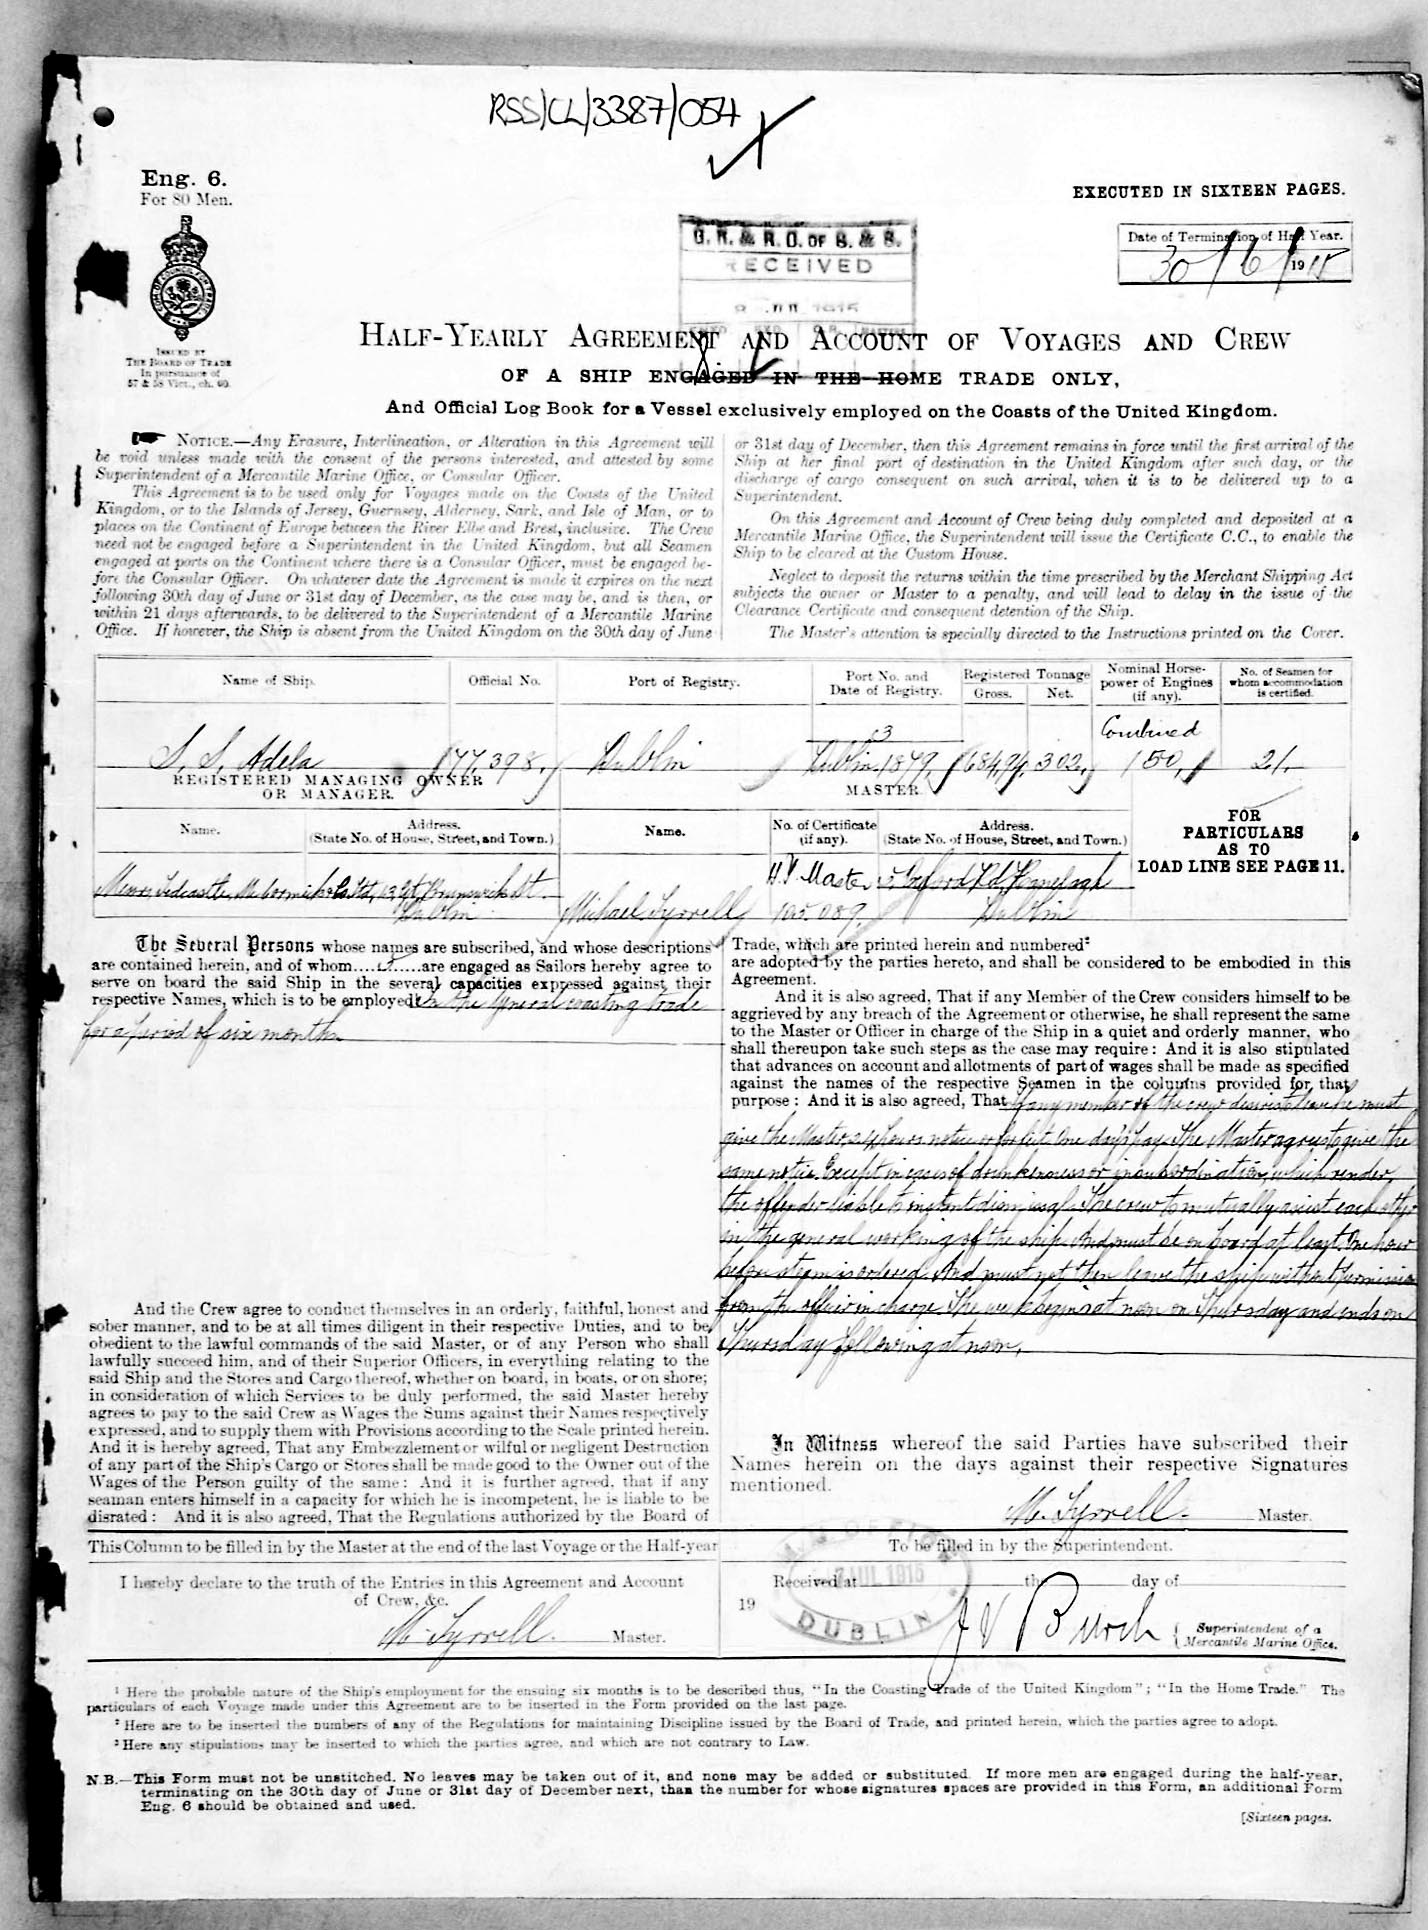 RSS/CL/3387/054
Eng. 6.
For 80 Men.
EXECUTED IN SIXTEEN PAGES.
Date of Termination of Half Year.
30/6/1915
G. R. & R. O. OF S. & S.
RECEIVED
1915
ISSUED BY
THE BOARD OF TRADE
In pursuance of
57 & 58 Vict., ch. 60.
HALF-YEARLY AGREEMENT AND ACCOUNT OF VOYAGES AND CREW
OF A SHIP ENGAGED IN THE HOME TRADE ONLY,
And Official Log Book for a Vessel exclusively employed on the Coasts of the United Kingdom.
NOTICE.—Any Erasure, Interlineation, or Alteration in this Agreement will
be void unless made with the consent of the persons interested, and attested by some
Superintendent of a Mercantile Marine Office, or Consular Officer.
This Agreement is to be used only for Voyages made on the Coasts of the United
Kingdom, or to the Islands of Jersey, Guernsey, Alderney, Sark, and Isle of Man, or to
places on the Continent of Europe between the River Elbe and Brest, inclusive. The Crew
need not be engaged before a Superintendent in the United Kingdom, but all Seamen
engaged at ports on the Continent where there is a Consular Officer, must be engaged be-
fore the Consular Officer. On whatever date the Agreement is made it expires on the next
following 30th day of June or 31st day of December, as the case may be, and is then, or
within 21 days afterwards, to be delivered to the Superintendent of a Mercantile Marine
Office. If however, the Ship is absent from the United Kingdom on the 30th day of June
or 31st day of December, then this Agreement remains in force until the first arrival of the
Ship at her final port of destination in the United Kingdom after such day, or the
discharge of cargo consequent on such arrival, when it is to be delivered up to a
Superintendent.
On this Agreement and Account of Crew being duly completed and deposited at a
Mercantile Marine Office, the Superintendent will issue the Certificate C.C., to enable the
Ship to be cleared at the Custom House.
Neglect to deposit the returns within the time prescribed by the Merchant Shipping Act
subjects the owner or Master to a penalty, and will lead to delay in the issue of the
Clearance Certificate and consequent detention of the Ship.
The Master's attention is specially directed to the Instructions printed on the Cover.
Name of Ship. Official No. Port of Registry. Port No. and Date of Registry. Registered Tonnage Gross. Net. Nominal Horse-power of Engines (if any). No. of Seamen for whom accommodation is certified.
S. S. Adela 77,398. Dublin 3 Dublin 1879. 684.94. 302. Combined 150. 21.
REGISTERED MANAGING OWNER
OR MANAGER.
MASTER
Name. Address. (State No. of House, Street, and Town.) Name. No. of Certificate (if any). Address. (State No. of House, Street, and Town.)
FOR
PARTICULARS
AS TO
LOAD LINE SEE PAGE 11.
Messrs Tedcastle, McCormick & Co Ltd, Gt. Brunswick St. Dublin Michael Tyrrell H.T. Master 105.089. 5 Oxford Rd, Ranelagh Dublin
The Several Persons whose names are subscribed, and whose descriptions
are contained herein, and of whom.....5.....are engaged as Sailors hereby agree to
serve on board the said Ship in the several capacities expressed against their
respective Names, which is to be employed¹ In the General coasting trade
for a period of six months
And the Crew agree to conduct themselves in an orderly, faithful, honest and
sober manner, and to be at all times diligent in their respective Duties, and to be
obedient to the lawful commands of the said Master, or of any Person who shall
lawfully succeed him, and of their Superior Officers, in everything relating to the
said Ship and the Stores and Cargo thereof, whether on board, in boats, or on shore;
in consideration of which Services to be duly performed, the said Master hereby
agrees to pay to the said Crew as Wages the Sums against their Names respectively
expressed, and to supply them with Provisions according to the Scale printed herein.
And it is hereby agreed, That any Embezzlement or wilful or negligent Destruction
of any part of the Ship's Cargo or Stores shall be made good to the Owner out of the
Wages of the Person guilty of the same: And it is further agreed, that if any
seaman enters himself in a capacity for which he is incompetent, he is liable to be
disrated: And it is also agreed, That the Regulations authorized by the Board of
Trade, which are printed herein and numbered²
are adopted by the parties hereto, and shall be considered to be embodied in this
Agreement.
And it is also agreed, That if any Member of the Crew considers himself to be
aggrieved by any breach of the Agreement or otherwise, he shall represent the same
to the Master or Officer in charge of the Ship in a quiet and orderly manner, who
shall thereupon take such steps as the case may require: And it is also stipulated
that advances on account and allotments of part of wages shall be made as specified
against the names of the respective Seamen in the columns provided for that
purpose: And it is also agreed, That if any member of the crew desires to leave he must
give the Master 24 hours notice or forfeit One day's pay. The Master agrees to give the
same notice. Except in cases of drunkenness or insubordination, which render
the offender liable to instant dismissal. The crew to mutually assist each other
in the general working of the ship. And must be on board at least One hour
before steam is ordered. And must not then leave the ship without permission
from the officer in charge. The week begins at noon on Thursday and ends on
Thursday following at noon.
In Witness whereof the said Parties have subscribed their
Names herein on the days against their respective Signatures
mentioned.
M. Tyrrell. Master.
This Column to be filled in by the Master at the end of the last Voyage or the Half-year
I hereby declare to the truth of the Entries in this Agreement and Account
of Crew, &c.
M. Tyrrell. Master.
To be filled in by the Superintendent.
Received at the day of
19
M. M. OFFICE
7 JUL 1915
DUBLIN
J V Burch
Superintendent of a
Mercantile Marine Office.
¹ Here the probable nature of the Ship's employment for the ensuing six months is to be described thus, "In the Coasting Trade of the United Kingdom"; "In the Home Trade." The
particulars of each Voyage made under this Agreement are to be inserted in the Form provided on the last page.
² Here are to be inserted the numbers of any of the Regulations for maintaining Discipline issued by the Board of Trade, and printed herein, which the parties agree to adopt.
³ Here any stipulations may be inserted to which the parties agree, and which are not contrary to Law.
N.B.—This Form must not be unstitched. No leaves may be taken out of it, and none may be added or substituted. If more men are engaged during the half-year,
terminating on the 30th day of June or 31st day of December next, than the number for whose signatures spaces are provided in this Form, an additional Form
Eng. 6 should be obtained and used.
[Sixteen pages.